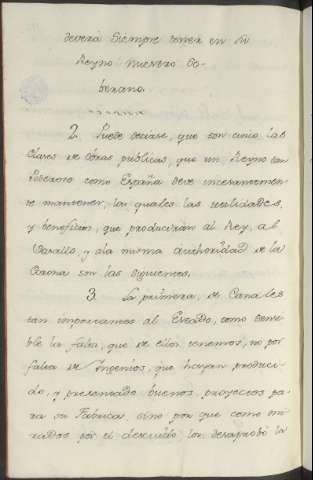 deverá siempre tener en su
Reyno nuestro So-
berano.
2. Puede decirse, que son cinco las
clases de obras publicas, que un Reyno tan
Poderoso como España deve incesantemen-
te mantener, los quales las utilidades,
y beneficios, que producirán al Rey, al
Vasallo, y ala misma authoridad de la
Corona son las siguientes.
3. La primera, de Canales
tan importantes al Estado, como sensi-
ble la falta, que de ellos tenemos, no por
falta de Ingenios, que hayan produci-
do, y presentado buenos proyectos pa-
ra su Fabrica sino por que como mi-
rados por el descuido los desaprobó la